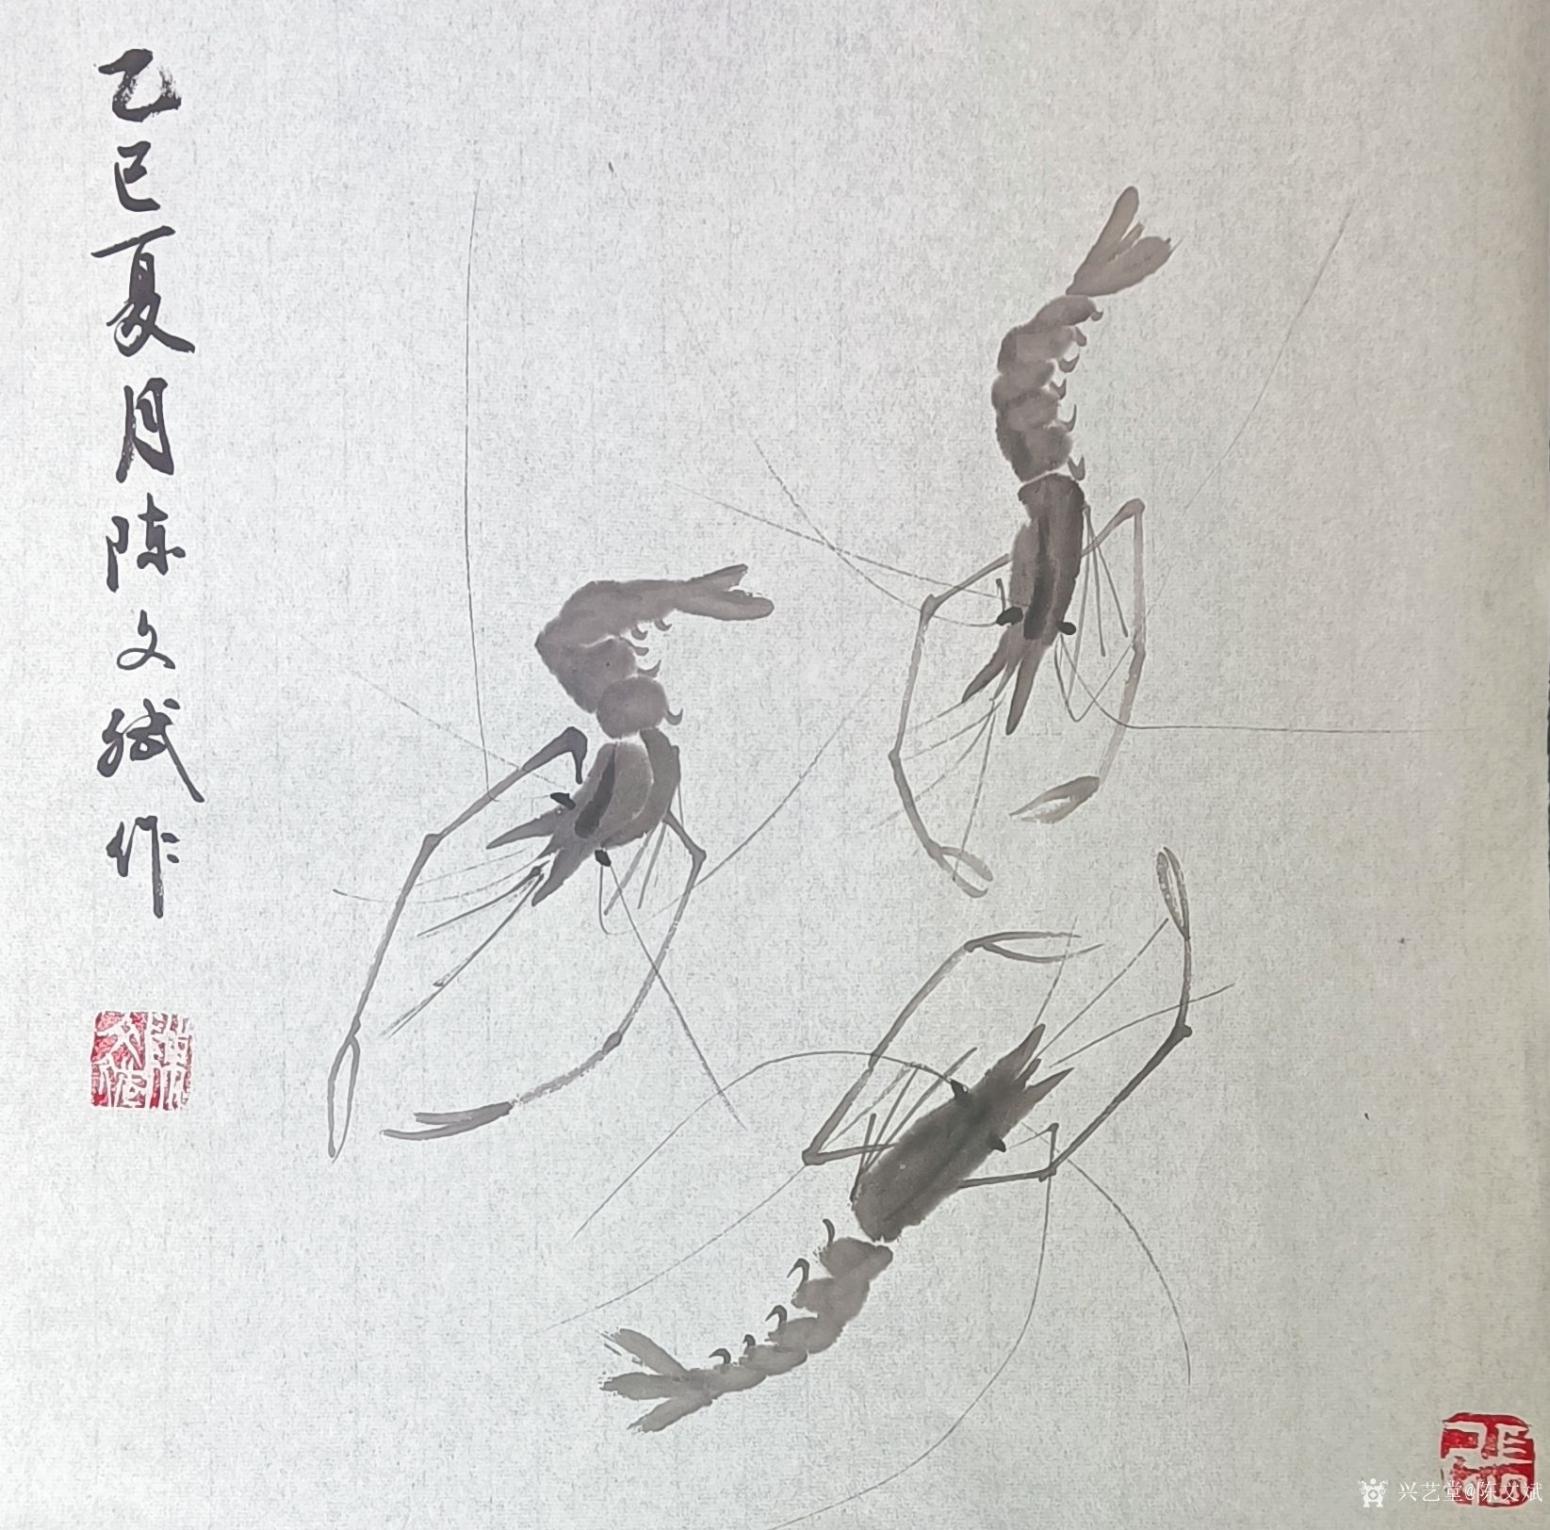 乙巳夏月陈文斌作
兴艺堂@陈文斌